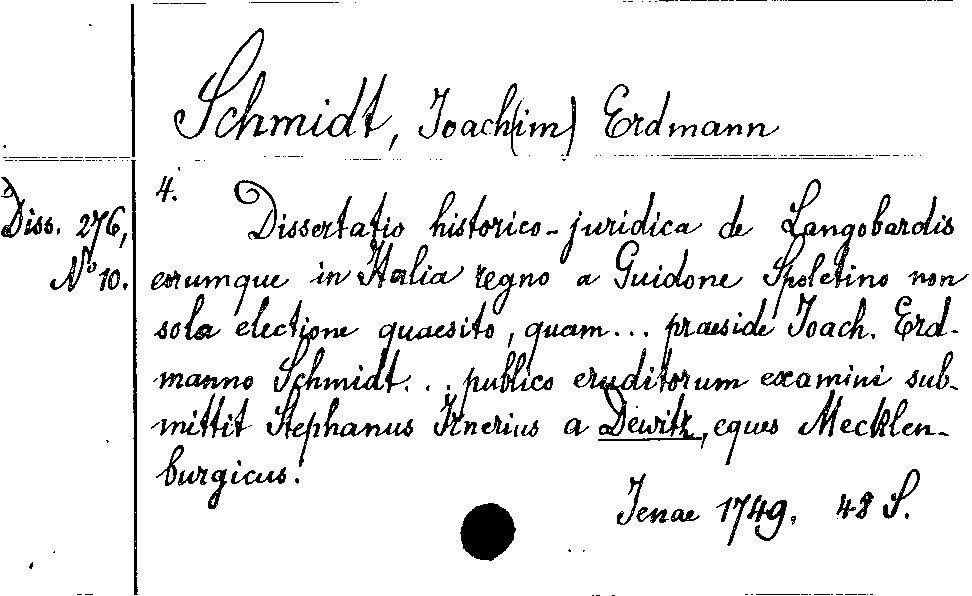 Schmidt, Joach(im) Erdmann
Diss. 276,
No 10.
4.
Dissertatio historico-juridica de Langobardis
eorumque in Italia regno a Guidone Spoletino non
sola electione quaesito, quam... praeside Joach. Erd-
manno Schmidt... publico eruditorum examini sub-
mittit Stephanus Irnerius a Dewitz, eques Mecklen-
burgicus.
Jenae 1749. 48 S.